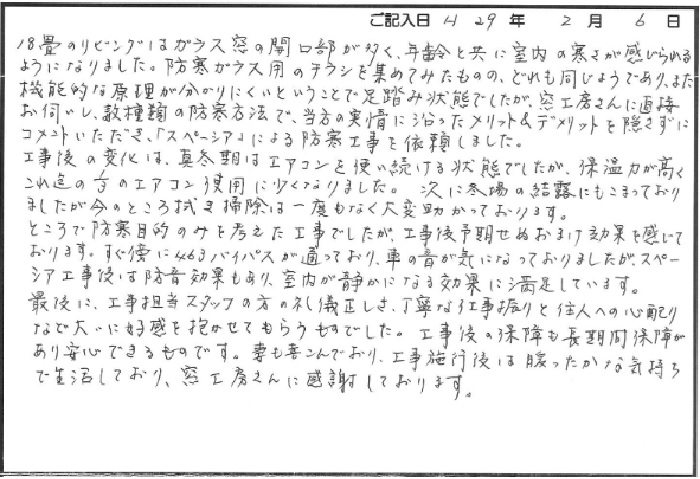 ご記入日 H 29 年 2 月 6 日
18畳のリビングはガラス窓の開口部が多く、年齢と共に室内の寒さが感じられる
ようになりました。防寒ガラス用のチラシを集めてみたものの、どれも同じようであり、また
機能的な原理が分かりにくいということで足踏み状態でしたが、窓工房さんに直接
お伺いし、数種類の防寒方法で、当方の実情に沿ったメリット&デメリットを隠さずに
コメントいただき、「スペーシア」による防寒工事を依頼しました。
工事後の変化は、真冬期はエアコンを使い続ける状態でしたが、保温力が高く
これ迄の のエアコン使用に少くなりました。次に冬場の結露にもこまっており
ましたが今のところ拭き掃除は一度もなく大変助かっております。
ところで防寒目的のみを考えた工事でしたが、工事後予期せぬおまけ効果を感じて
おります。すぐ傍に463バイパスが通っており、車の音が気になっておりましたが、スペー
シア工事後は防音効果もあり、室内が静かになる効果に満足しています。
最後に、工事担当スタッフの方の礼儀正しさ、丁寧な仕事振りと住人への心配り
など大いに好感を抱かせてもらうものでした。工事後の保障も長期間保障が
あり安心できるものです。妻も喜こんでおり、工事施行後は暖ったかな気持ち
で生活しており、窓工房さんに感謝しております。